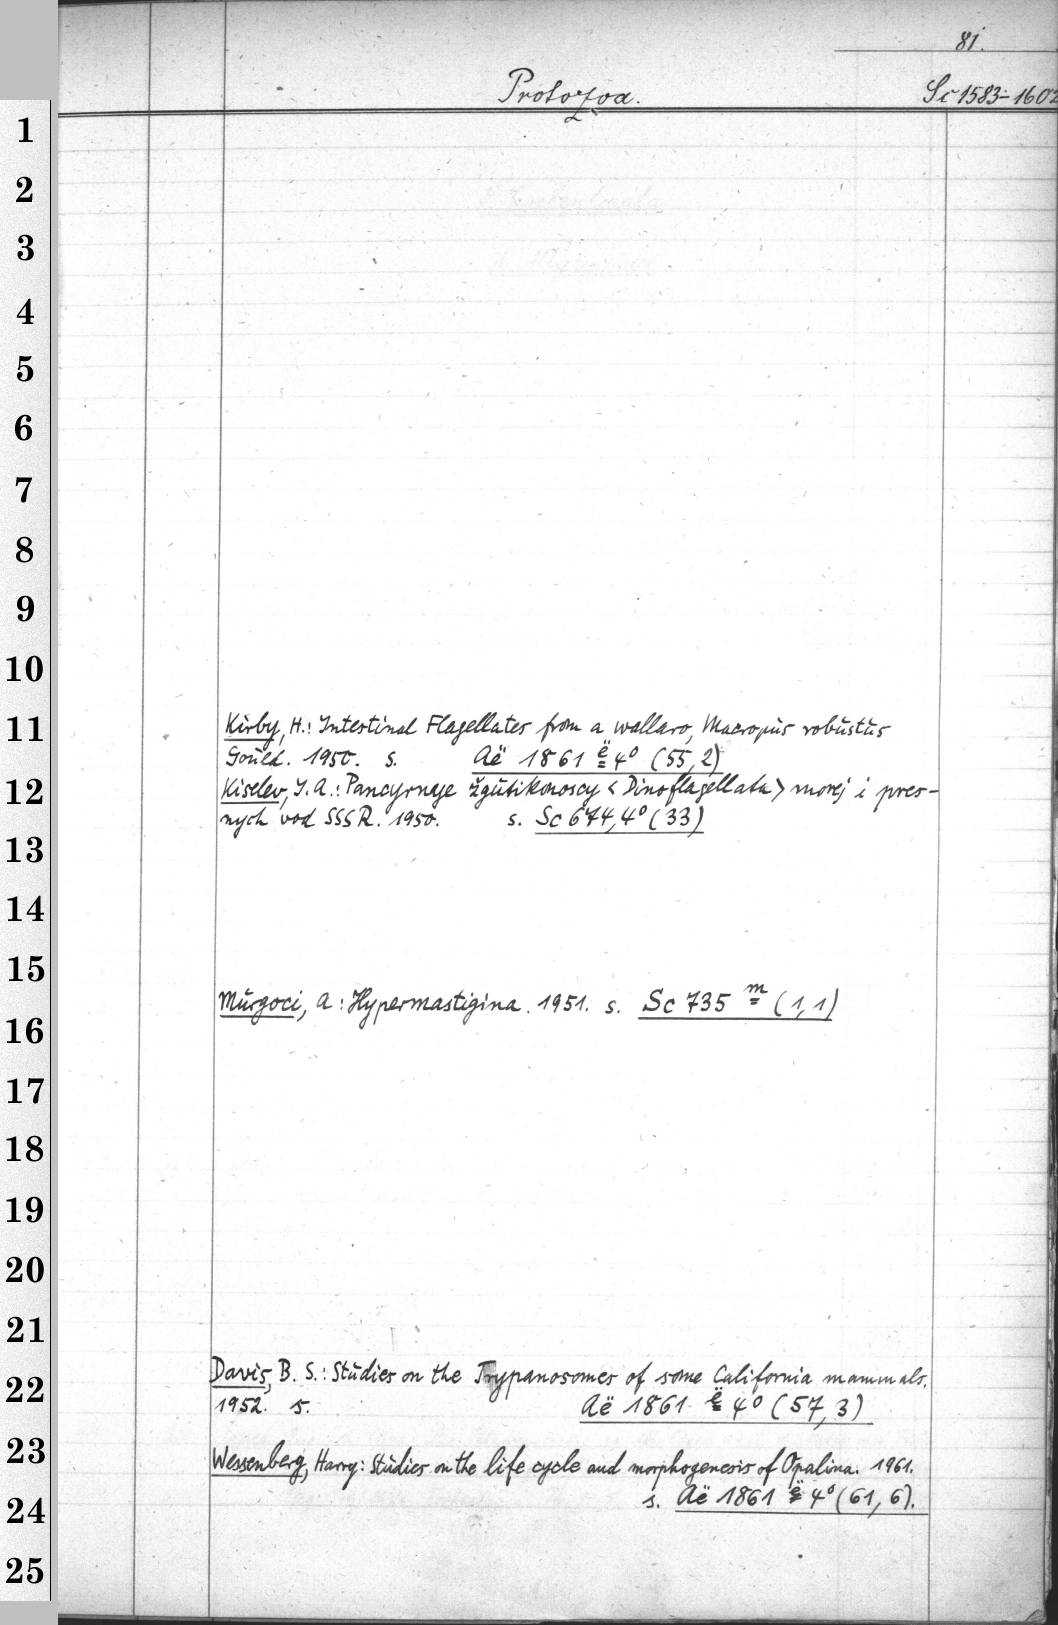 81.
Protozoa.
Sc 1583-1602
1
2
3
4
5
6
7
8
9
10
11
Kirby, H.: Intestinal Flagellates from a wallaro, Macropus robustus
Gould. 1950. s. Aë 1861 ë 4° (55, 2)
12
Kiselev, I. A.: Pancyrnye žgutikonoscy <Dinoflagellata> morej i pres-
nych vod SSSR. 1950. s. Sc 674, 4° (33)
13
14
15
Murgoci, A.: Hypermastigina. 1951. s. Sc 735 m (1, 1)
16
17
18
19
20
21
22
Davis, B. S.: Studies on the Trypanosomes of some California mammals.
1952. s. Aë 1861 ë 4° (57, 3)
23
Wessenberg, Harry: Studies on the life cycle and morphogenesis of Opalina. 1961.
s. Aë 1861 ë 4° (61, 6).
24
25